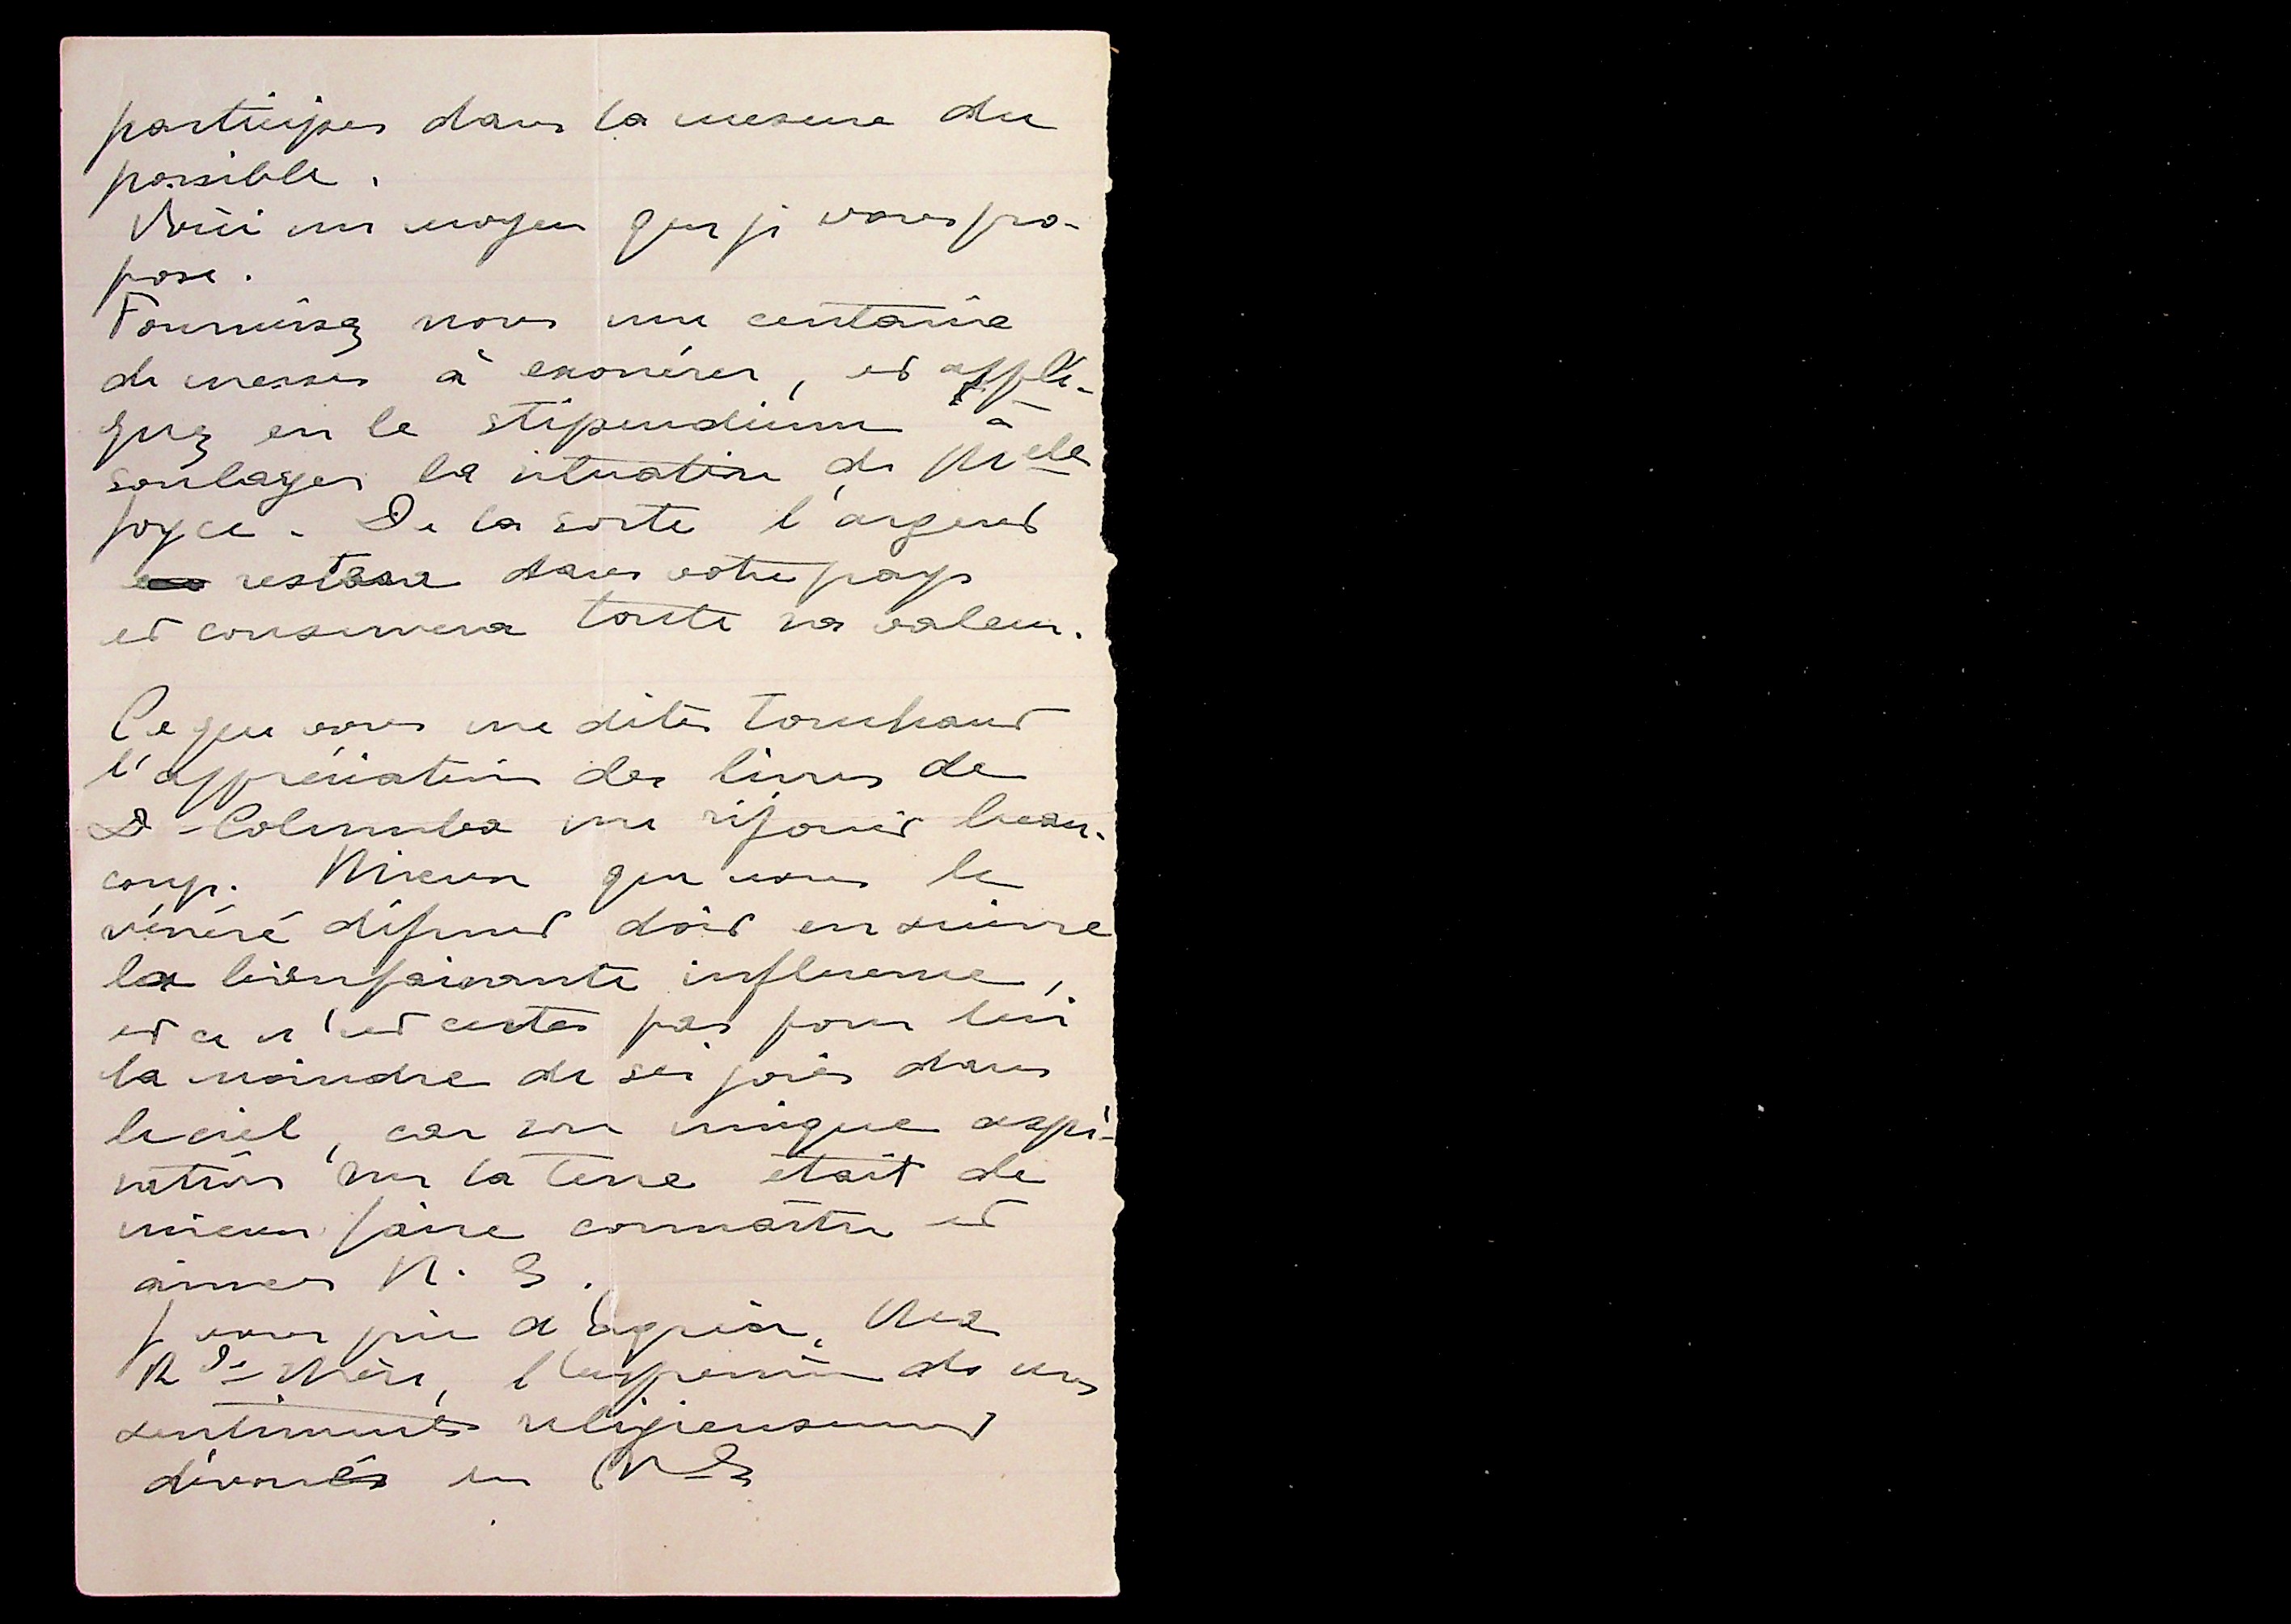 participer dans la mesure du
possible.
Voici un moyen que je vous pro-
pose.
Fournissez nous une centaine
de messes à exonérer, et appli-
quez en le stipendium à
soulager la situation de Melle
Joyce. De la sorte l'argent
restera dans votre pays
et conservera toute sa valeur.
Ce que vous me dites touchant
l'appréciation des livres de
D-Columba me réjouit beau-
coup. Mieux que nous le
vénéré défunt doit en suivre
la bienfaisante influence,
et ce n'est certes pas pour lui
la moindre de ses joies dans
le ciel, car son unique aspi-
ration sur la terre était de
mieux faire connaître et
aimer N. S.
Je vous prie d'agréer, Ma
Rde Mère, l'expression de mes
sentiments religieusement
dévoués en N-S